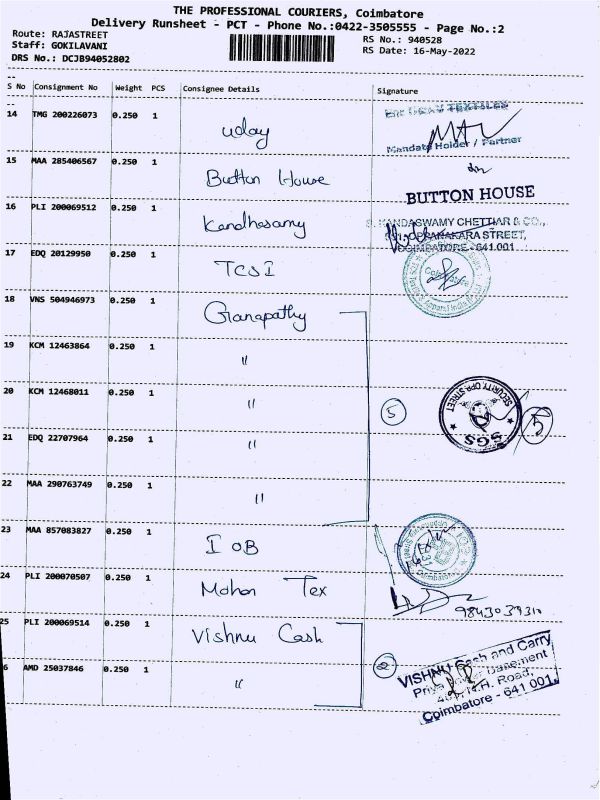 THE PROFESSIONAL COURIERS, Coimbatore
Delivery Runsheet - PCT - Phone No.:0422-3505555 - Page No.:2
Route: RAJASTREET RS No.: 940528
Staff: GOKILAVANI RS Date: 16-May-2022
DRS No.: DCJB94052802
--
S No Consignment No Weight PCS Consignee Details Signature
--
14 TMG 200226073 0.250 1 uday
TEXTILES
Mandate Holder / Partner
15 MAA 285406567 0.250 1 Button House
BUTTON HOUSE
16 PLI 200069512 0.250 1 Kandhasamy
KANDASWAMY CHETTIAR & CO.,
STREET,
COIMBATORE - 641 001
17 EDQ 20129950 0.250 1 TCSI
Coimbatore
18 VNS 504946973 0.250 1 Ganapathy
19 KCM 12463864 0.250 1 "
20 KCM 12468011 0.250 1 " 5
SECURITY OPR STREET
SGS
5
21 EDQ 22707964 0.250 1 "
22 MAA 290763749 0.250 1 "
23 MAA 857083827 0.250 1 IOB
Coimbatore
24 PLI 200070507 0.250 1 Mohan Tex
25 PLI 200069514 0.250 1 Vishnu Cash
6 AMD 25037846 0.250 1 " 2
VISHNU Cash and Carry
Priya Tower Basement
N.H. Road,
Coimbatore - 641 001.